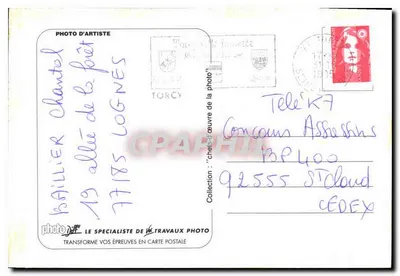 PHOTO D'ARTISTE
BAILLIER Chantal
19 allée de la forêt
77185 LOGNES
TORCY
Collection: "chef d'œuvre de la photo"
TéléK7
Concours Assassins
BP 400
92555 St Cloud
CEDEX
LE SPECIALISTE DE TRAVAUX PHOTO
TRANSFORME VOS ÉPREUVES EN CARTE POSTALE